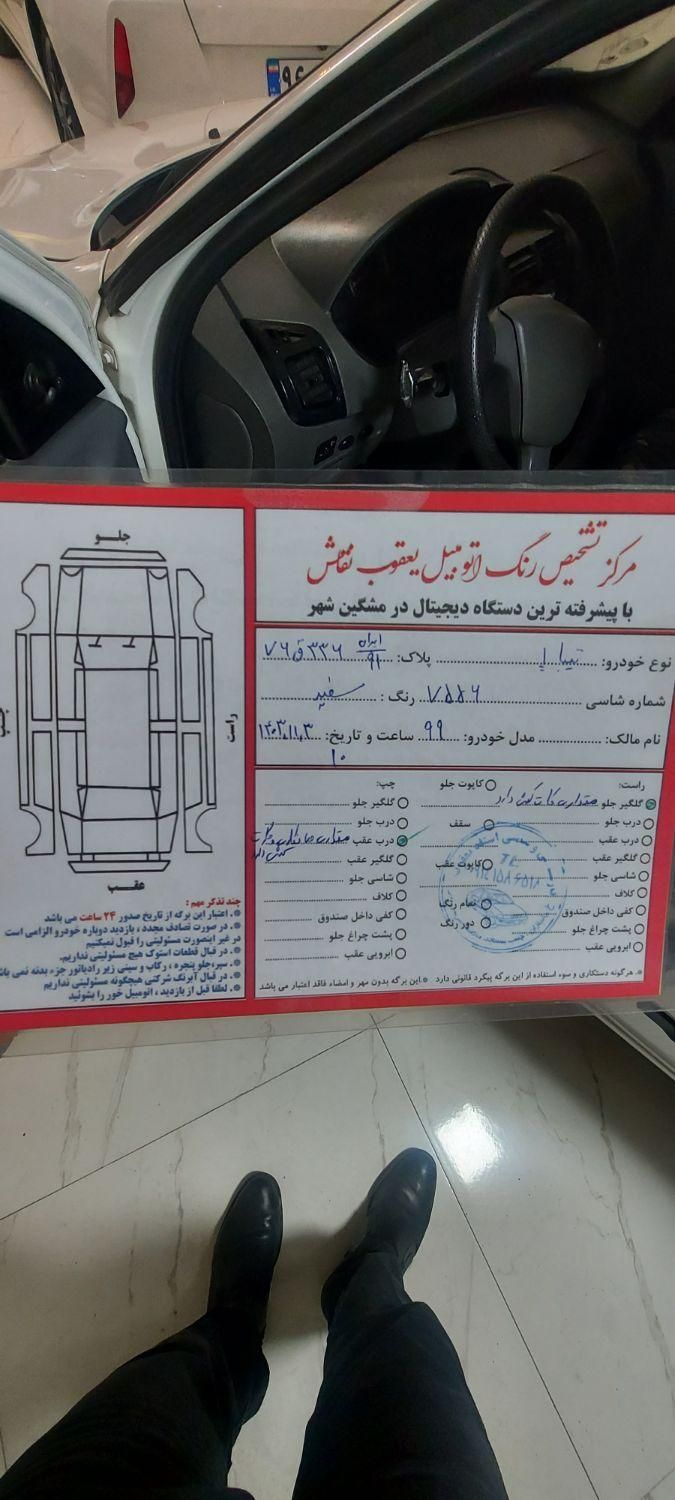 ۹۶
مرکز تشخیص رنگ اتومبیل یعقوب نقاش
با پیشرفته ترین دستگاه دیجیتال در مشگین شهر
نوع خودرو: تیبا پلاک: ایران ۹۱ ۳۳۶ ق ۷۶
شماره شاسی ۷۵۵۶ رنگ: سفید
نام مالک: مدل خودرو: ۹۹ ساعت و تاریخ: ۱۴۰۳،۱۱،۳
۱۰
راست:
گلگیر جلو مقداری کات کش دارد
درب جلو
درب عقب
گلگیر عقب
شاسی جلو
کلاف
کفی داخل صندوق
پشت چراغ جلو
ابرویی عقب
کاپوت جلو
سقف
کاپوت عقب
تمام رنگ
دور رنگ
چپ:
گلگیر جلو
درب جلو
درب عقب مقداری
گلگیر عقب
شاسی جلو
کلاف
کفی داخل صندوق
پشت چراغ جلو
ابرویی عقب
*. هرگونه دستکاری و سوء استفاده از این برگه پیگرد قانونی دارد *این برگه بدون مهر و امضاء فاقد اعتبار می باشد
جلو
راست
چپ
عقب
چند تذکر مهم :
*. اعتبار این برگه از تاریخ صدور ۲۴ ساعت می باشد
*. در صورت تصادف مجدد، بازدید دوباره خودرو الزامی است
در غیر اینصورت مسئولیتی را قبول نمیکنیم
*. در قبال قطعات استوک هیچ مسئولیتی نداریم.
*. سپر، جلو پنجره، رکاب و سینی زیر رادیاتور جزء بدنه نمی باشد
*. در قبال آبرنگ شرکتی هیچگونه مسئولیتی نداریم
*. لطفا قبل از بازدید، اتومبیل خور را بشوئید